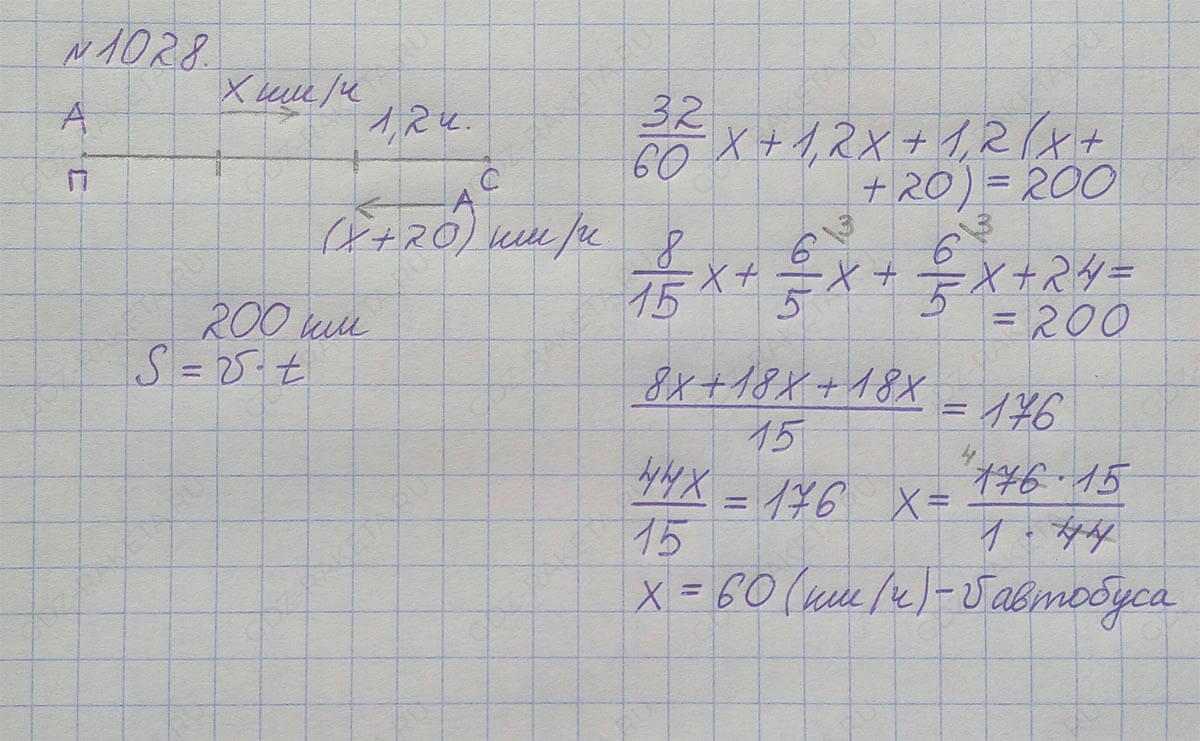 №1028.
x км/ч
А
1,2ч.
П
С
А
(x+20) км/ч
200 км
S = v · t
32/60 x + 1,2x + 1,2 (x +
+20) = 200
8/15 x + 6/5 \3 x + 6/5 \3 x + 24 =
= 200
8x+18x+18x / 15 = 176
44x/15 = 176 x = 4 176 · 15 / 1 · 44
x = 60 (км/ч) – v автобуса